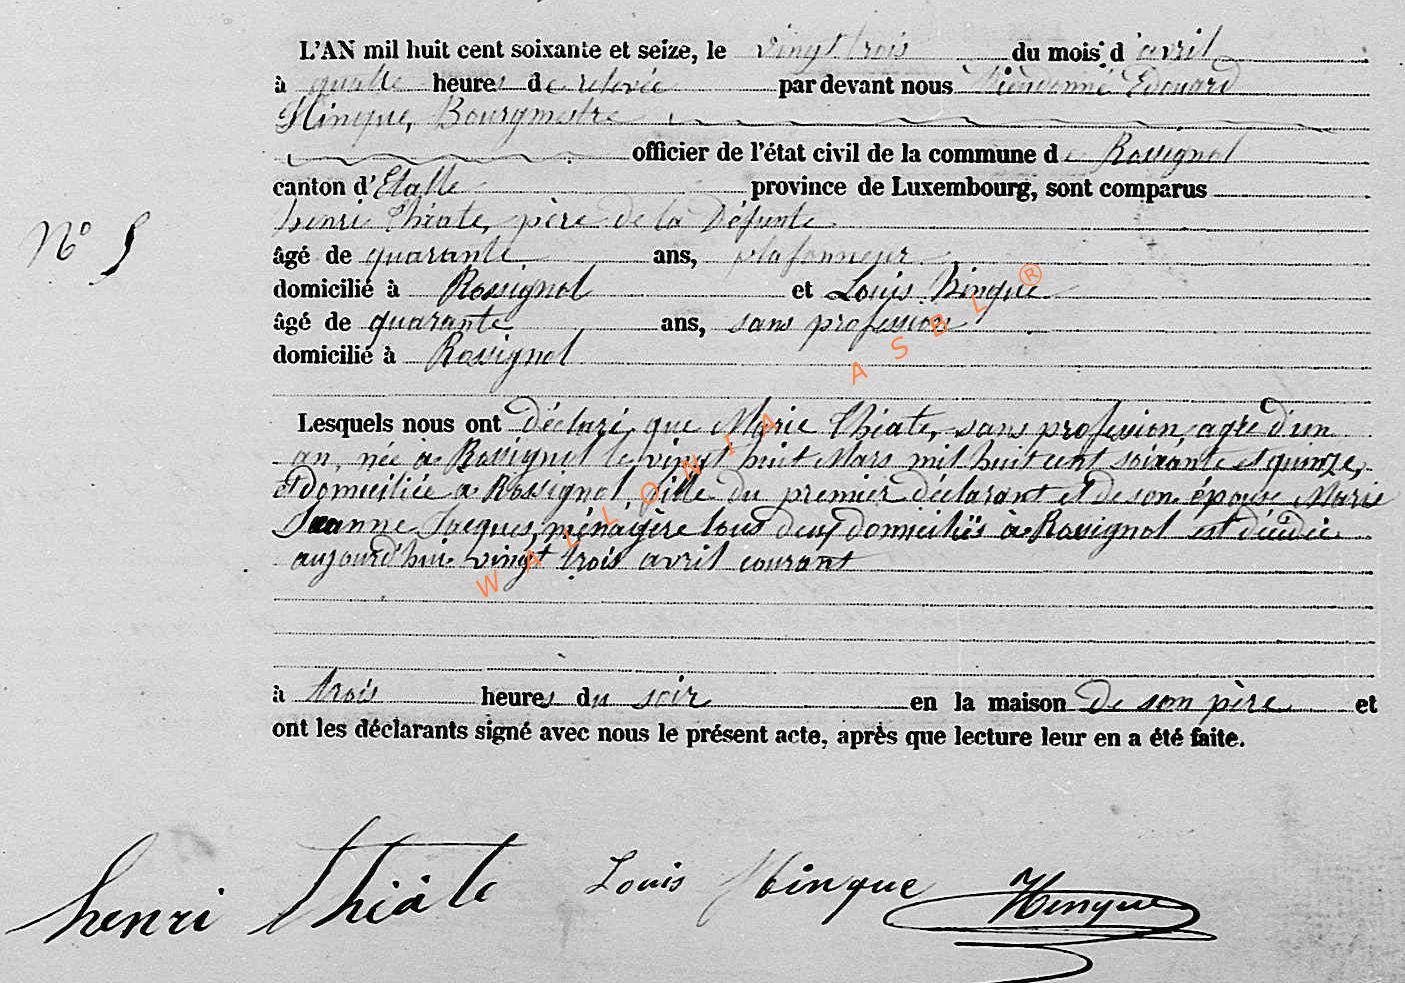 L'AN mil huit cent soixante et seize, le vingt trois du mois d'avril
à quatre heures de relevée par devant nous Dieudonné Edouard
Hinque, Bourgmestre
officier de l'état civil de la commune de Rossignol
canton d'Etalle province de Luxembourg, sont comparus
henri Thiate, père de la Défunte
N° 5
âgé de quarante ans, plafonneur
domicilié à Rossignol et Louis Hinque
âgé de quarante ans, sans profession
domicilié à Rossignol
Lesquels nous ont déclaré que Marie Thiate, sans profession, agée d'un
an, née à Rossignol le vingt huit Mars mil huit cent soixante et quinze,
et domiciliée à Rossignol, fille du premier déclarant et de son épouse Marie
Jeanne Jacques, ménagère tous deux domiciliés à Rossignol est décédée
aujourd'hui vingt trois avril courant
à trois heures du soir en la maison de son père et
ont les déclarants signé avec nous le présent acte, après que lecture leur en a été faite.
henri thiâte Louis Hinque Hinque
WALLONIA ASBL ®